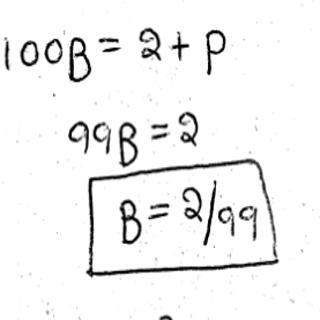 100B = 2 + P
99B = 2
B = 2/99